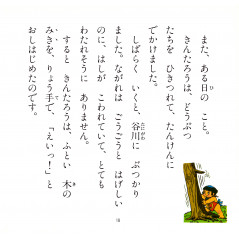 また、ある日の こと。
きんたろうは、どうぶつ
たちを ひきつれて、たんけんに
でかけました。
しばらく いくと、谷川に ぶつかり
ました。ながれは ごうごうと はげしい
のに、はしが こわれていて、とても
わたれそうに ありません。
すると きんたろうは、ふとい 木の
みきを、りょう手で、「えいっ!」と
おしはじめたのです。